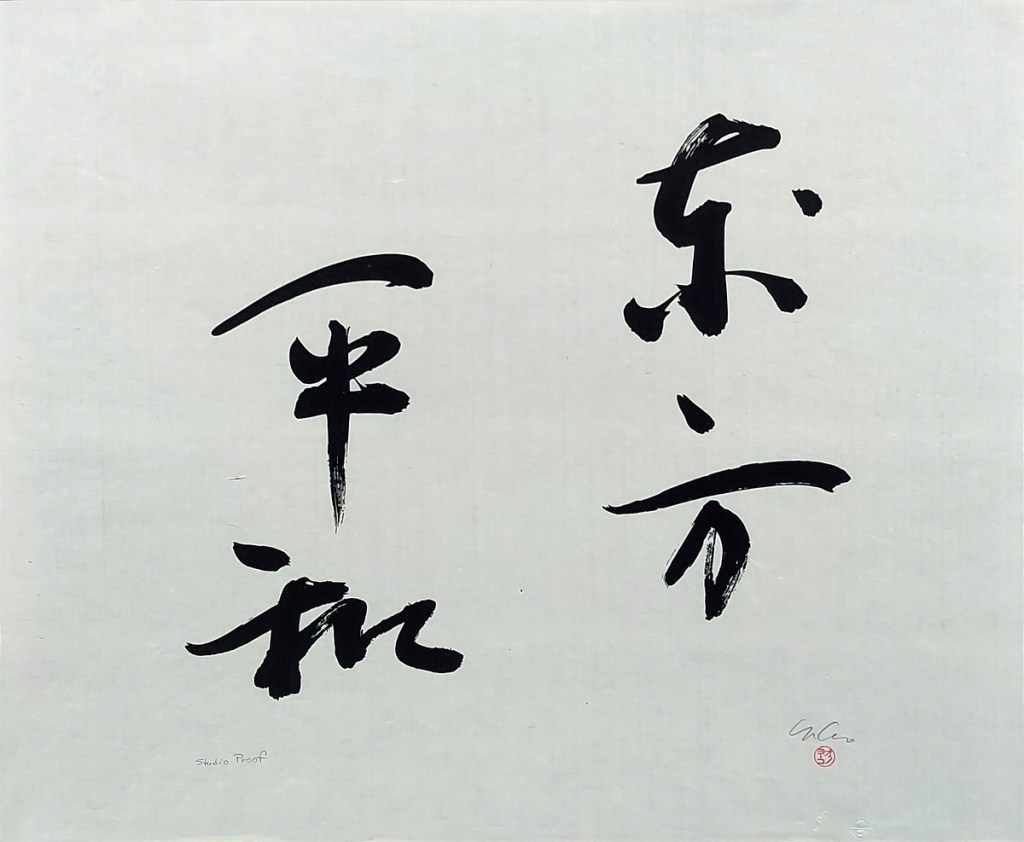 东方
平和
Studio Proof